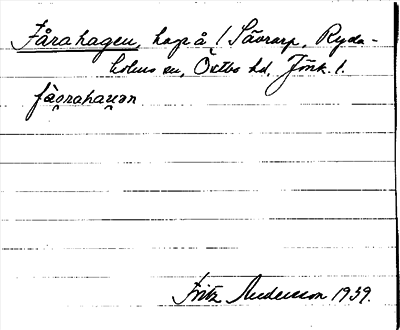 Fårahagen, hage å 1 Sävrarp, Ryda-
holms sn, Östbo hd, Jönk. l.
få̀o̯rahaɡən
Fritz Andersson 1939.